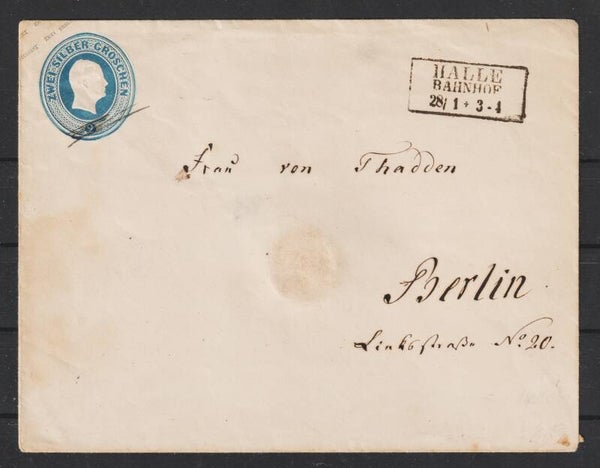 ZWEI SILBER GROSCHEN
2
HALLE
BAHNHOF
28/1 * 3-4
Frau von Thadden
Berlin
Linksstraße No 20.